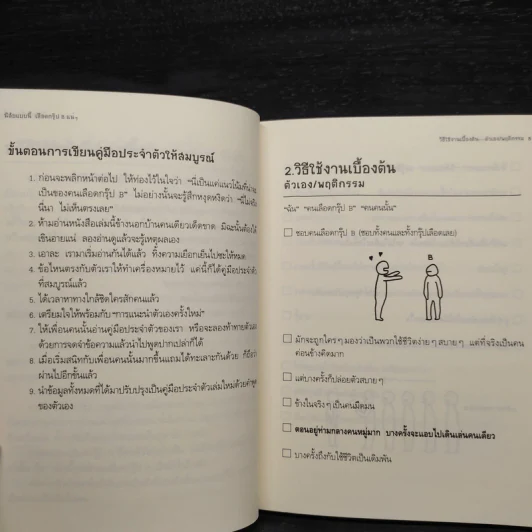 นิสัยแบบนี้ เลือดกรุ๊ป B แน่ๆ
ขั้นตอนการเขียนคู่มือประจำตัวให้สมบูรณ์
1. ก่อนจะพลิกหน้าต่อไป ให้ท่องไว้ในใจว่า "นี่เป็นแค่แนวโน้มที่น่าจะ
เป็นของคนเลือดกรุ๊ป B" ไม่อย่างนั้นจะรู้สึกหงุดหงิดว่า
นี่นา ไม่เห็นตรงเลย"
2. ห้ามอ่านหนังสือเล่มนี้ข้างนอกบ้านคนเดียวเด็ดขาด มิฉะนั้นต้อง
เขินอายแน่ ลองอ่านดูแล้วจะรู้เหตุผลเอง
3. เอาละ เรามาเริ่มอ่านกันได้แล้ว ทิ้งความเยือกเย็นไปซะให้หมด
4. ข้อไหนตรงกับตัวเราให้ทำเครื่องหมายไว้ แค่นี้ก็ได้คู่มือประจำตัว
ที่สมบูรณ์แล้ว
5. ได้เวลาหาทางใกล้ชิดใครสักคนแล้ว
6. เตรียมใจให้พร้อมกับ "การแนะนำตัวเองครั้งใหม่"
7. ให้เพื่อนคนนั้นอ่านคู่มือประจำตัวของเรา หรือจะลองท้าทายตัวเอง
ด้วยการจดจำข้อความแล้วนำไปพูดปากเปล่าก็ได้
8. เมื่อเริ่มสนิทกับเพื่อนคนนั้นมากขึ้นแถมได้ทะเลาะกันด้วย ก็ถือว่า
ผ่านไปอีกขั้นแล้ว
9. นำข้อมูลทั้งหมดที่ได้มาปรับปรุงเป็นคู่มือประจำตัวเล่มใหม่ด้วยคำพูด
ของตัวเอง
วิธีใช้งานเบื้องต้น--ตัวเอง/พฤติกรรม
2.วิธีใช้งานเบื้องต้น
ตัวเอง/พฤติกรรม
"ฉัน" "คนเลือดกรุ๊ป B" "คนคนนั้น"
☐ ชอบคนเลือดกรุ๊ป B (ชอบทั้งคนและทั้งกรุ๊ปเลือดเลย)
B
☐ มักจะถูกใครๆ มองว่าเป็นพวกใช้ชีวิตง่ายๆ สบายๆ แต่ที่จริงเป็นคน
ค่อนข้างคิดมาก
☐ แต่บางครั้งก็ปล่อยตัวสบายๆ
☐ ข้างในจริงๆ เป็นคนมืดมน
☐ ตอนอยู่ท่ามกลางคนหมู่มาก บางครั้งจะแอบไปเดินเล่นคนเดียว
☐ บางครั้งถึงกับใช้ชีวิตเป็นเดิมพัน